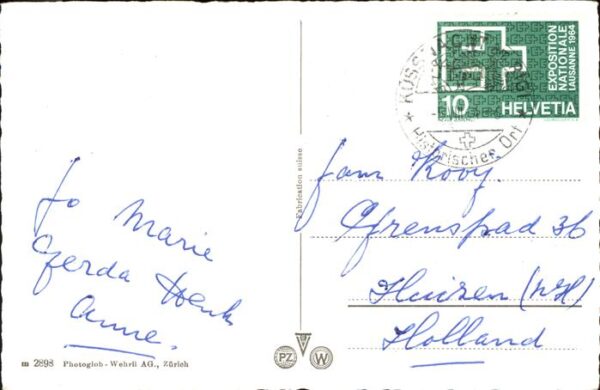 EXPOSITION
NATIONALE
LAUSANNE 1964
10 HELVETIA
Historischer Ort
Fam. Kooy.
36
Huizen (NH)
Holland
Jo Marie
Gerda Henk
Anne.
Fabrication suisse
m 2898 Photoglob-Wehrli AG., Zürich
PZ W